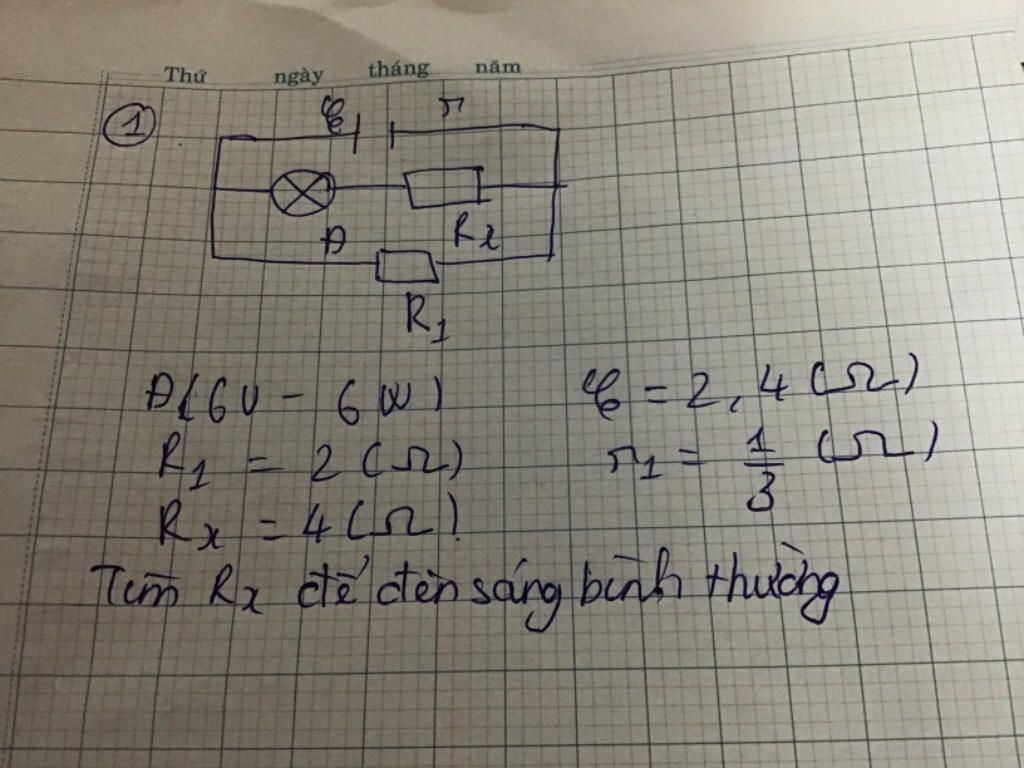 Thứ ngày tháng năm
1
ℰ r
Đ Rx
R1
Đ(6V - 6W) ℰ = 2,4 (Ω)
R1 = 2 (Ω) r1 = 1/3 (Ω)
Rx = 4 (Ω)
Tìm Rx để đèn sáng bình thường